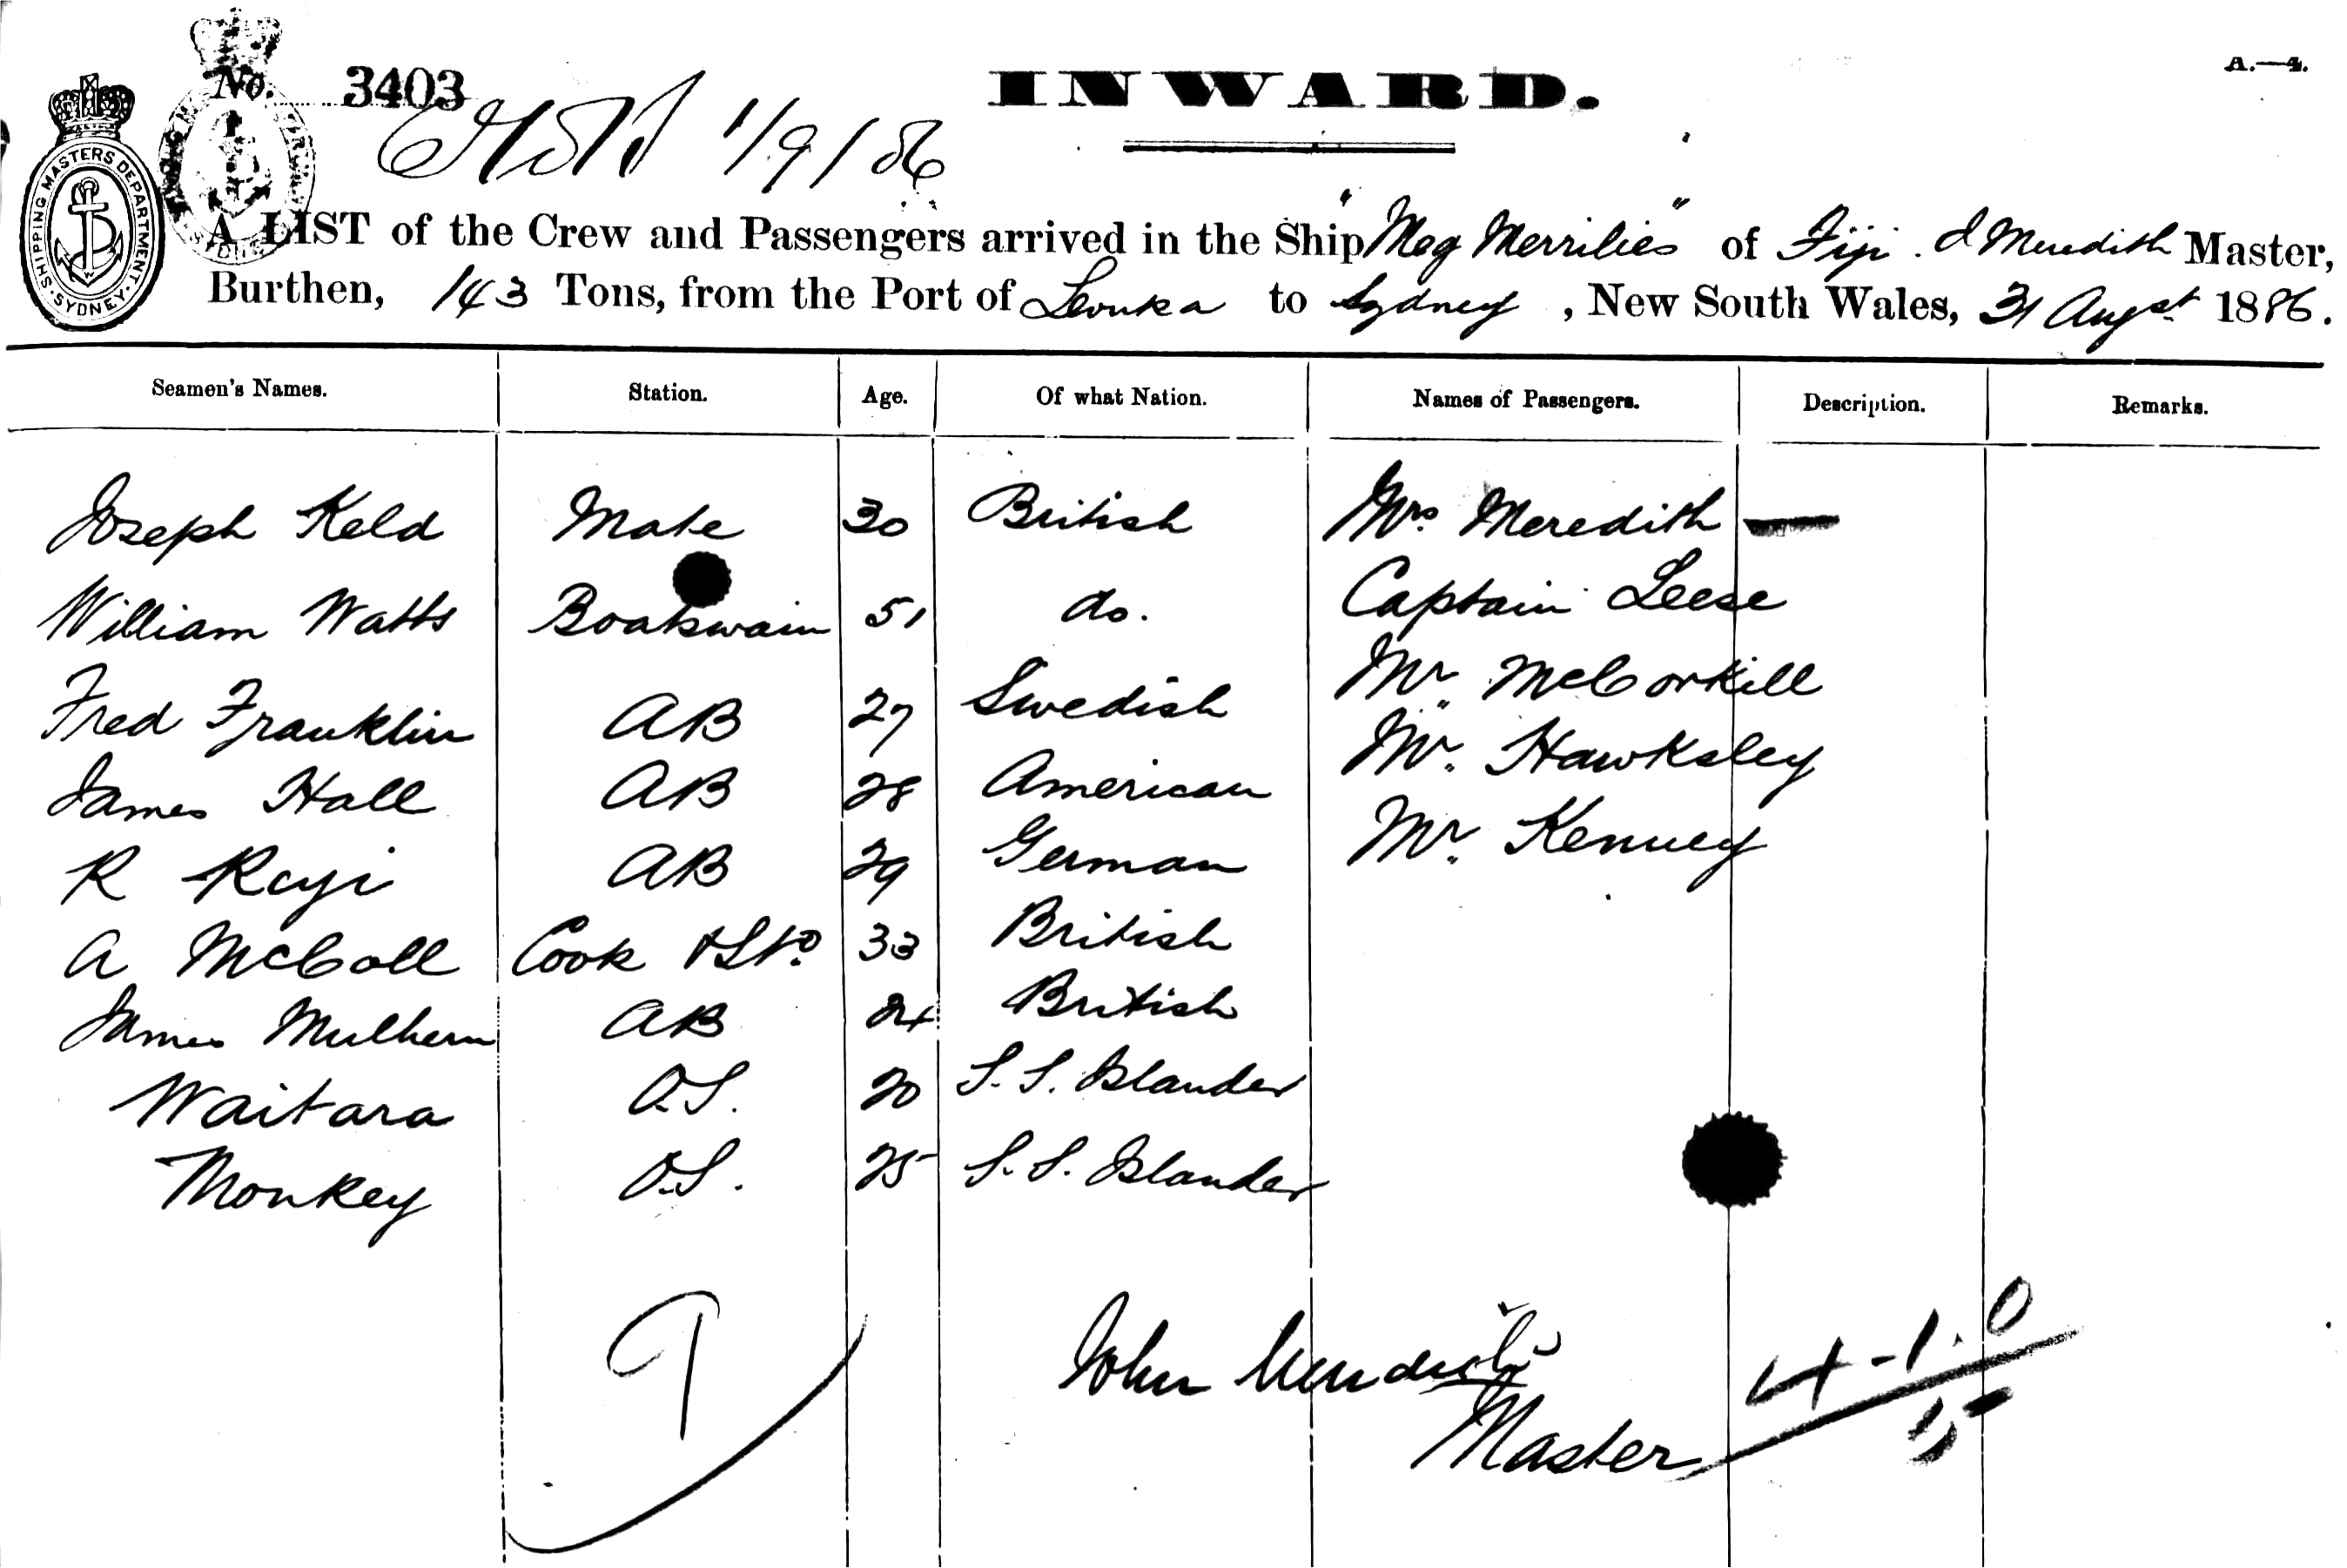 A.—4.
No. 3403
INWARD.
1/9/86
SHIPPING MASTERS DEPARTMENT. SYDNEY.
A LIST of the Crew and Passengers arrived in the Ship "Meg Merrilies" of Fiji. J Meredith Master,
Burthen, 143 Tons, from the Port of Levuka to Sydney, New South Wales, 31 Augst 1886.
Seamen's Names. Station. Age. Of what Nation. Names of Passengers. Description. Remarks.
Joseph Keld Mate 30 British Mrs Meredith —
William Watts Boatswain 51 do. Captain Leese
Fred Franklin AB 27 Swedish Mr. McCorkill
James Hall AB 28 American Mr. Hawksley
R AB 29 German Mr. Kenney
A McColl Cook & Std 33 British
James Mulhern AB 24 British
Waitara O.S. 20 S. S. Islander
Monkey O.S. 25 S. S. Islander
9
John Meredith
Master
4-1.0
5